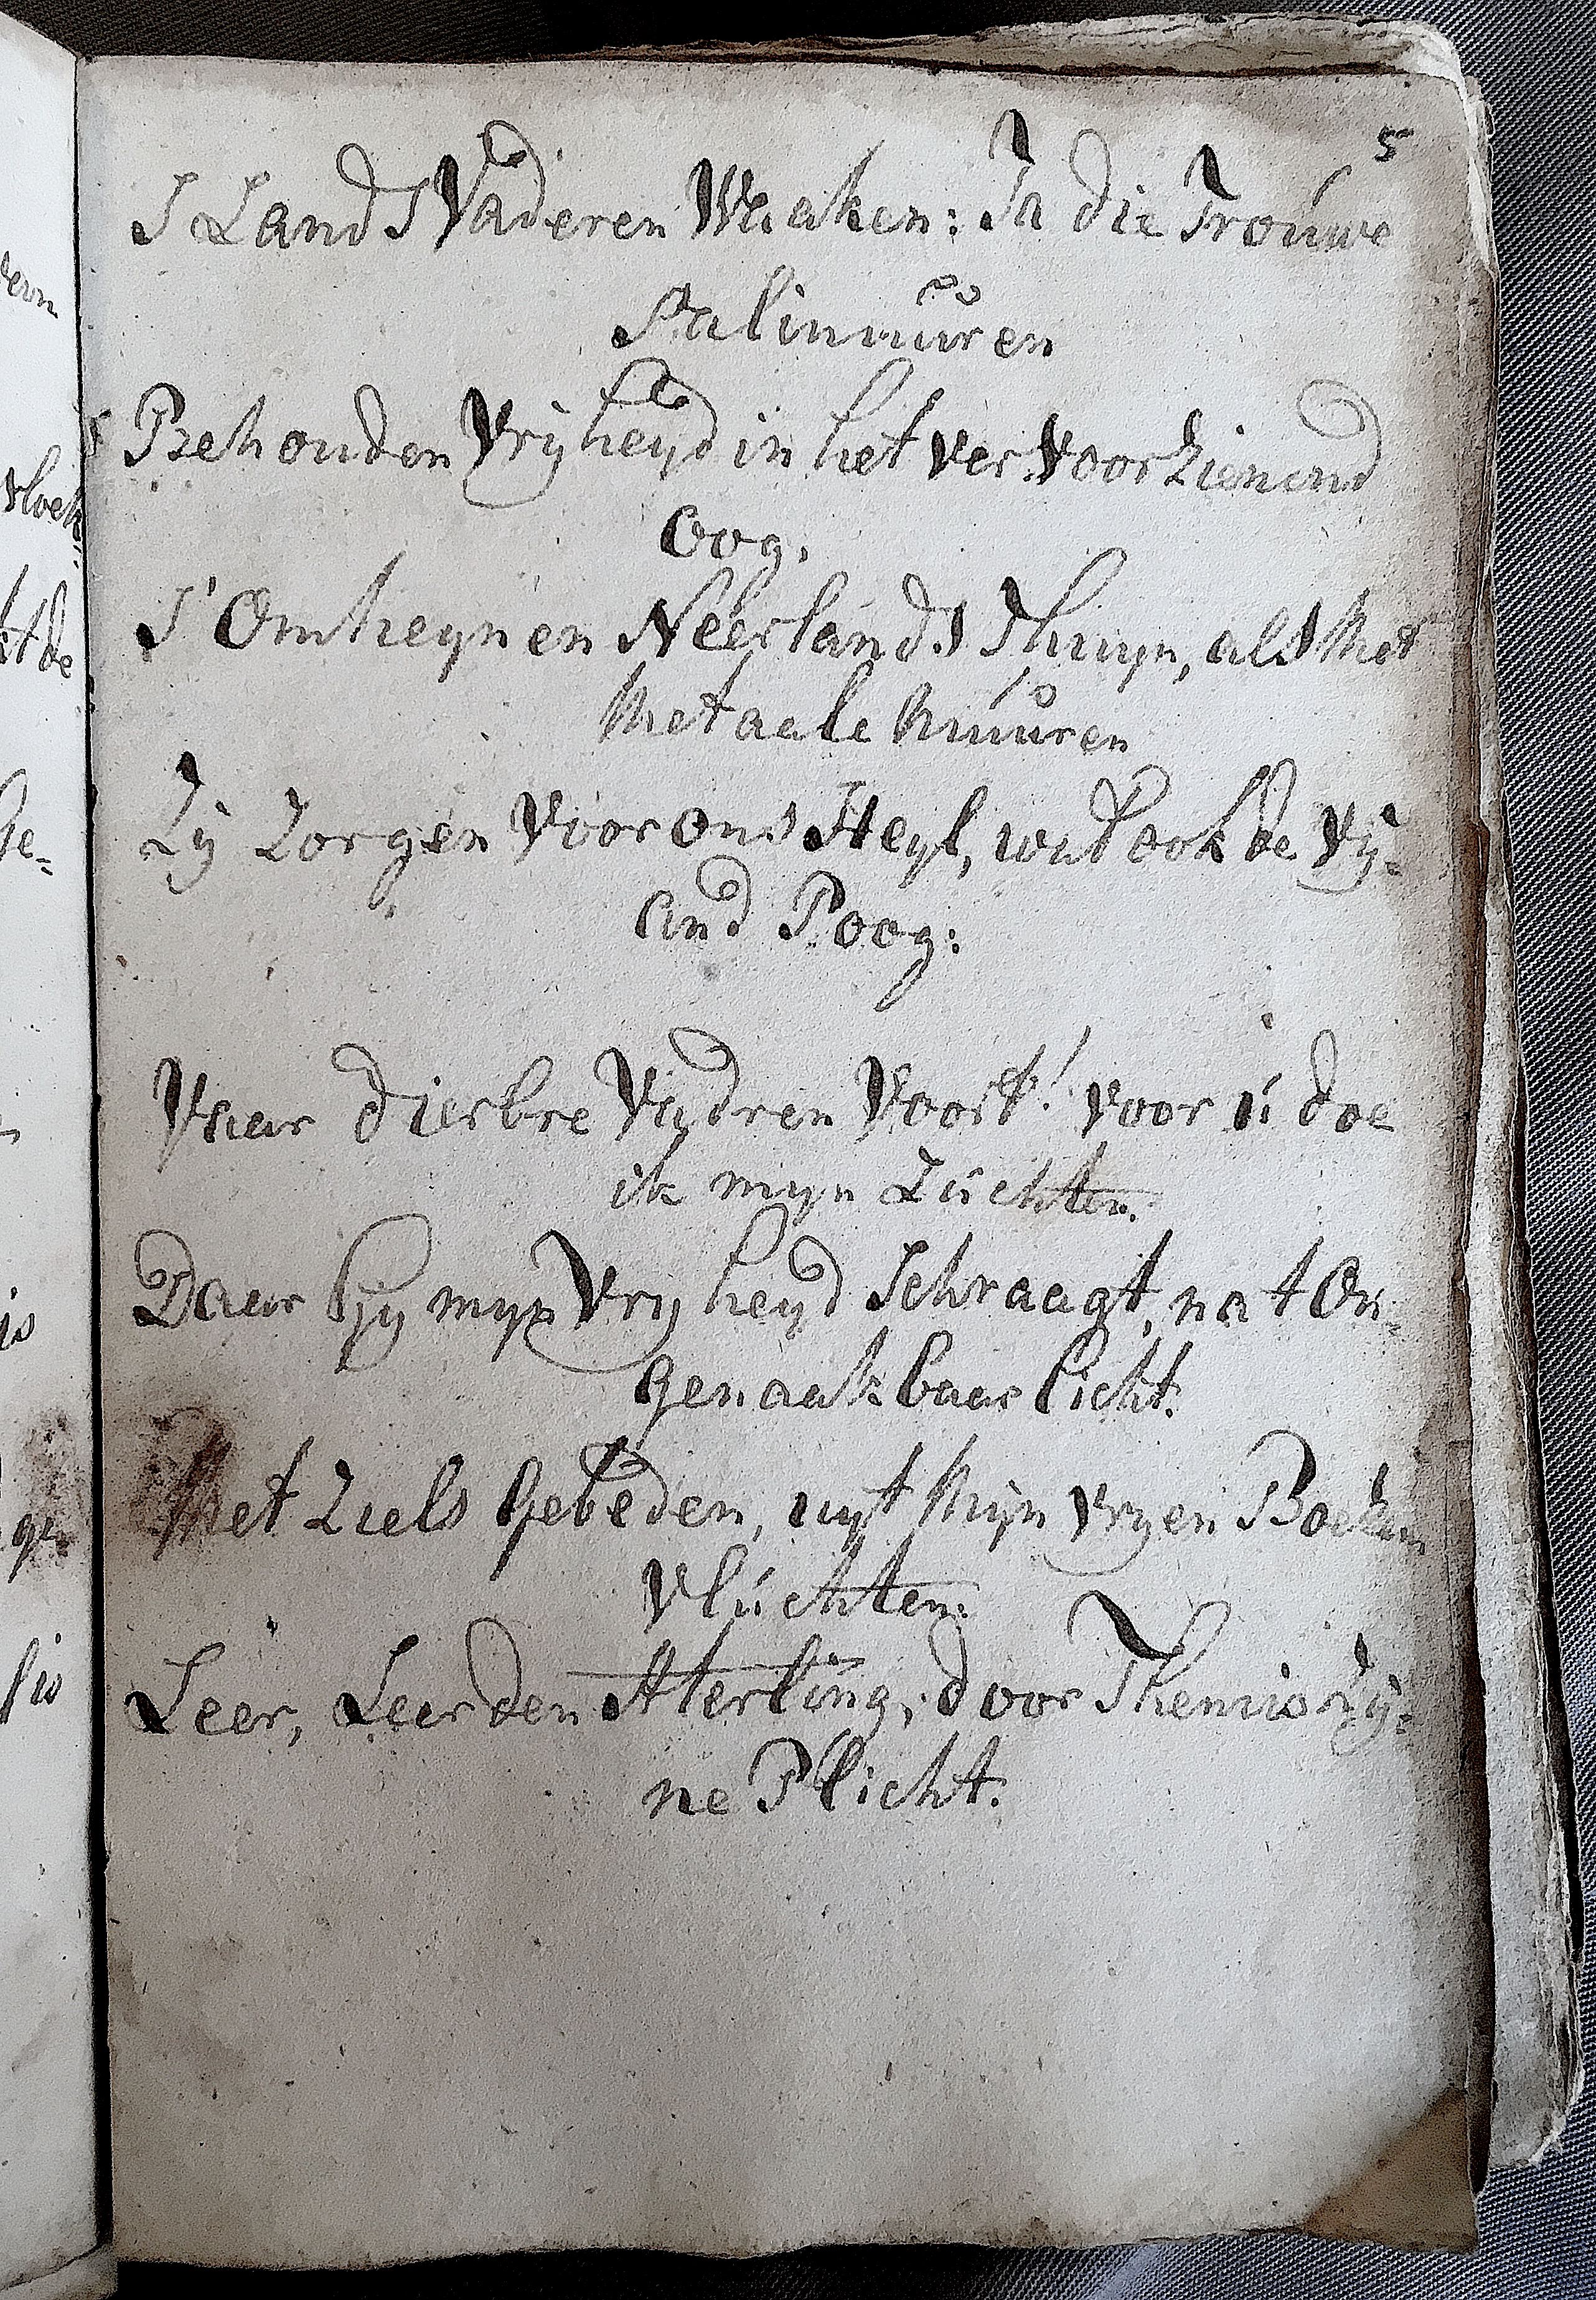 5
S Lands Vaderen Waaken: Ja die Trouwe
Palinuuren
Behouden Vrijheyd in het ver voorzienend
Oog,
S' Omheynen Neerlands Thuyn, als Met
Metaale Muuren
Zij Zorgen voor ons Heyl, wat ook de Vij-
and Poog:
Vaar dierbre Vadren Voort! voor ú doe
ik myn Zúchten.
Daar Gy myn Vryheyd Schraagt, na t On-
genaakbaar licht.
Met Ziels Gebeden, uyt Mijn vryen Boesem
Vlúchten:
Leer, Leer den Aterling, door Themis Zy-
ne Plicht.